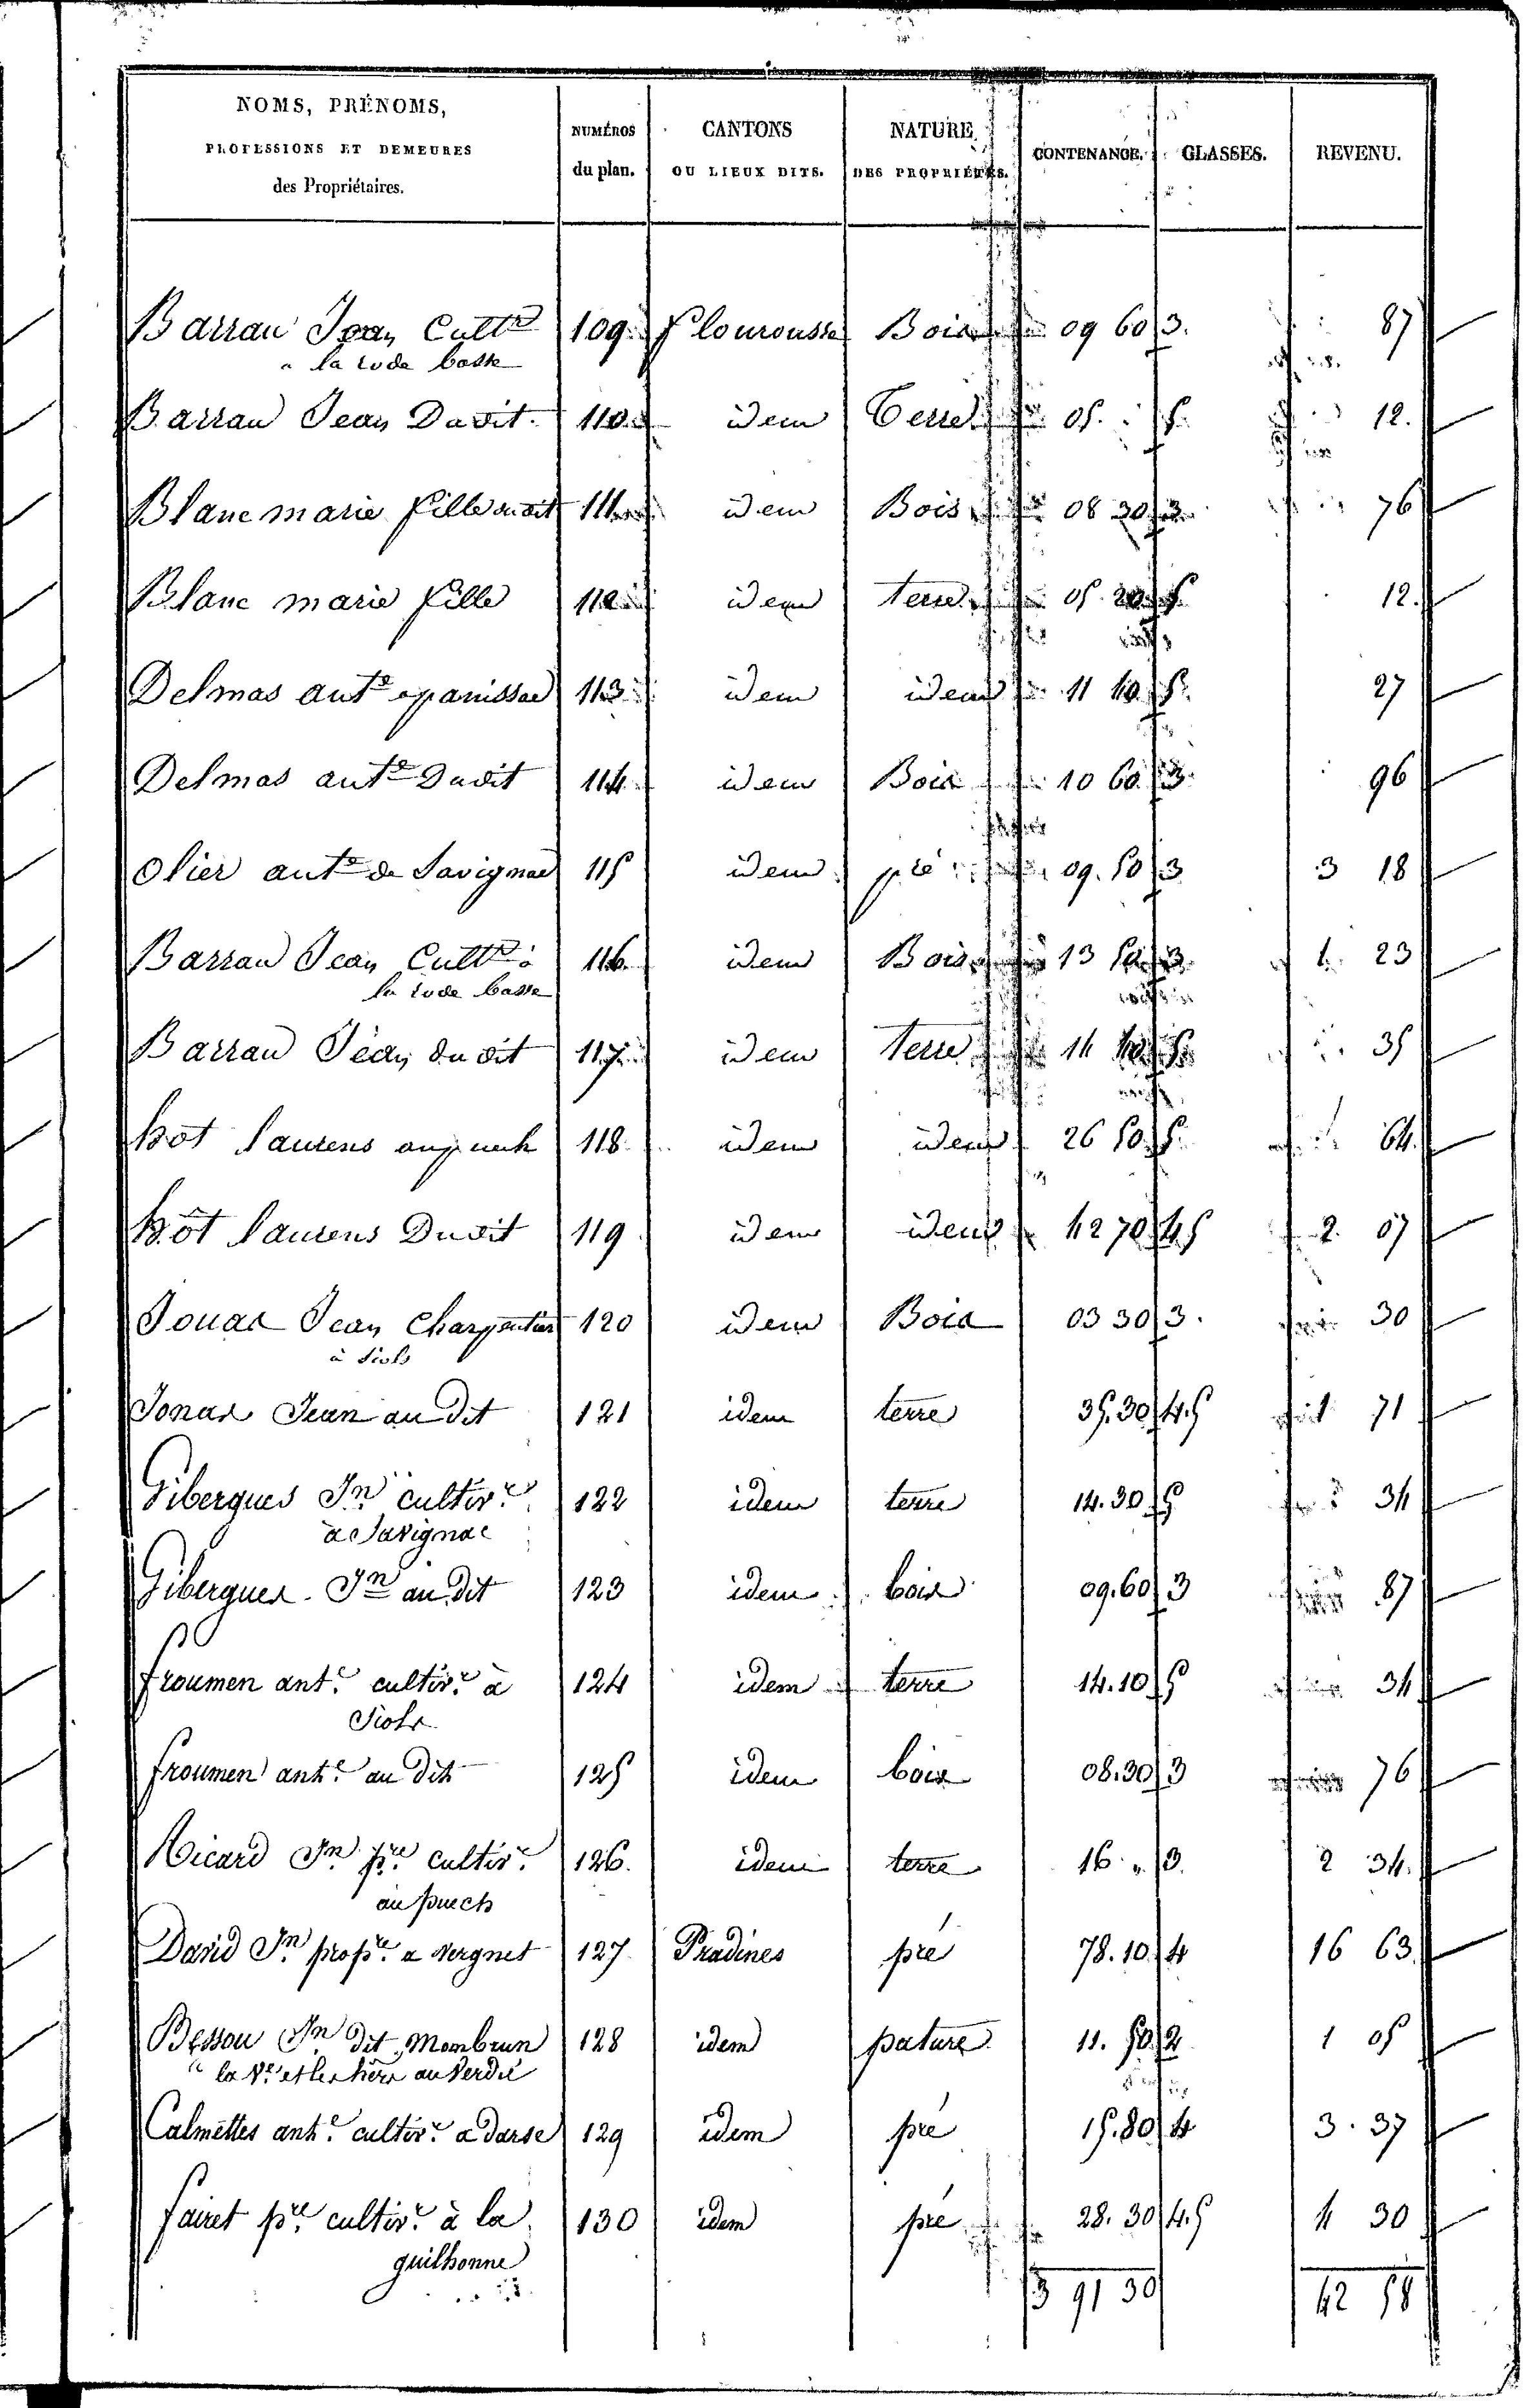 NOMS, PRÉNOMS, PROFESSIONS ET DEMEURES des Propriétaires. NUMÉROS du plan. CANTONS OU LIEUX DITS. NATURE DES PROPRIÉTÉS. CONTENANCE. CLASSES. REVENU.
Barrau Jean Cultr 109 flourousse Bois 09 60 3. 87
a la rode basse
Barrau Jean Dudit 110 idem Terre 05. 5. 12.
Blanc marie fille audit 111 idem Bois 08 30 3 76
Blanc marie fille 112 idem terre 05 20 5 12.
Delmas ante a panissac 113 idem idem 11 10 5 27
Delmas ante Dudit 114 idem Bois 10 60 3 96
Olier ante de Savignac 115 idem pré 09. 50 3 3 18
Barrau Jean Cultr à 116 idem Bois 13 50 3 1 23
la rode basse
Barrau Jean du dit 117 idem terre 14 40 5 35
hot laurens au puech 118 idem idem 26 50 5. 64.
hot laurens Dudit 119 idem idem 42 70 4.5 2. 07
Jonas Jean Charpentier 120 idem Bois 03 30 3. 30
à Siols
Jonas Jean au dit 121 idem terre 35. 30 4.5 1 71
Gibergues Jn cultivr 122 idem terre 14. 30 5 34
à Savignac
Gibergues Jn au dit 123 idem bois 09. 60 3 87
froumen ante cultivr à 124 idem terre 14. 10 5 34
Siols
froumen ante au dit 125 idem bois 08. 30 3 76
Ricard Jn pre cultivr 126. idem terre 16 " 3. 2 34.
au puech
David Jn propre a vergnet 127 Pradines pré 78. 10 4 16 63
Bessou Jn dit Mombrun 128 idem pature 11. 50 2 1 05
la Ve et les hers au Verdié
Calmettes ante cultivr a darse 129 idem pré 15. 80 4 3. 37
fairet pre cultivr à la 130 idem pré 28. 30 4.5 4 30
guilhonne
3 91 30 42 58